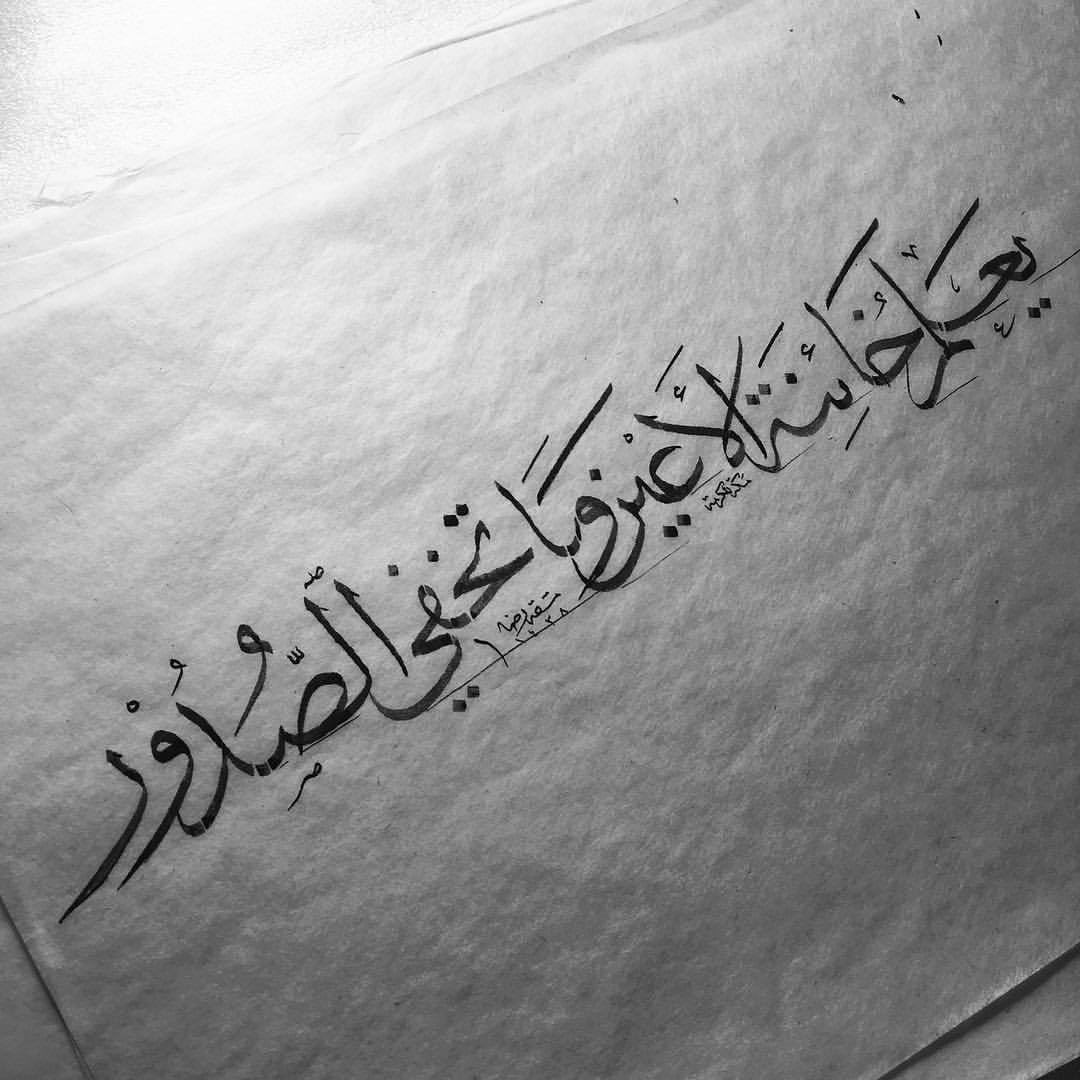 يعلم خائنة الأعين وما تخفي الصدور